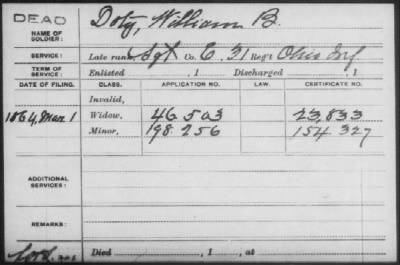 DEAD
NAME OF SOLDIER: Doty, William B.
SERVICE: Late rank, Sgt Co. E, 31 Reg't Ohio Inf.
TERM OF SERVICE: Enlisted , 1 Discharged , 1
DATE OF FILING. CLASS. APPLICATION NO. LAW. CERTIFICATE NO.
Invalid,
1864, Mar 1 Widow, 46 503 23,833
Minor, 198.256 154.327
ADDITIONAL SERVICES:
REMARKS:
Died , 1 , at